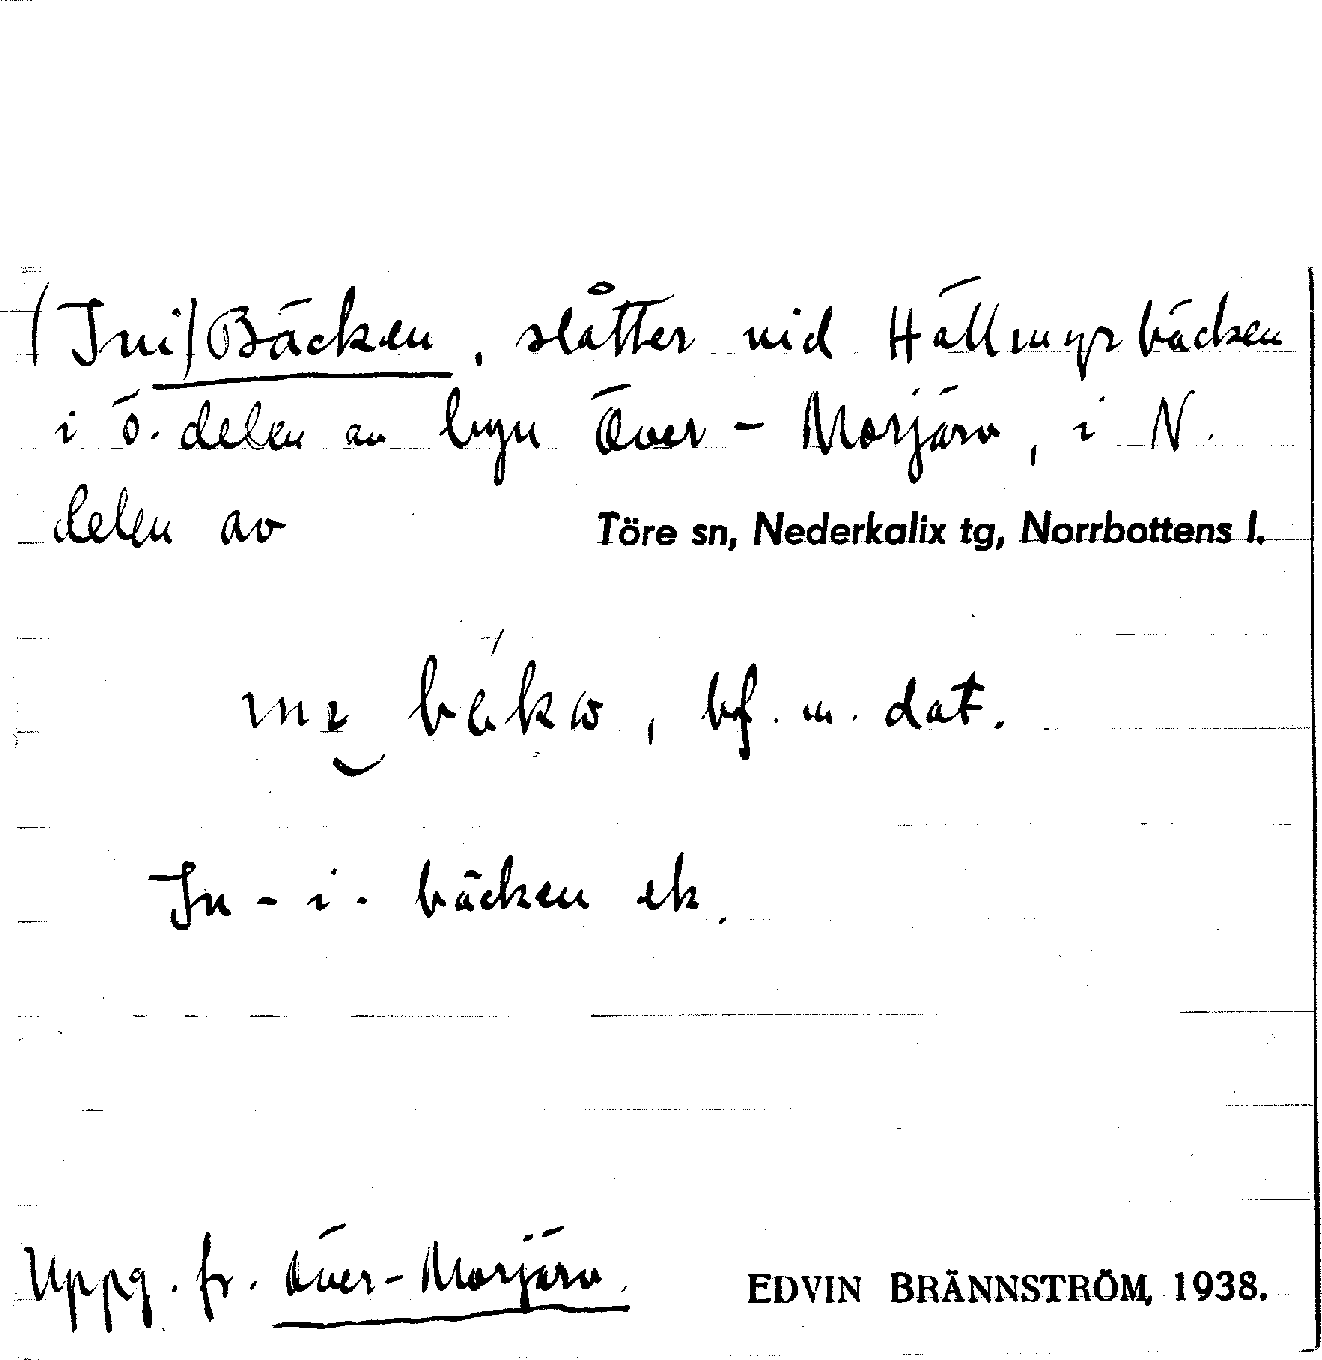 (Ini) Bäcken, slåtter vid Hällmyrbäcken
i ö. delen av byn Över-Morjärv, i N.
delen av Töre sn, Nederkalix tg, Norrbottens l.
bf. m. dat.
In-i-bäcken ek.
Uppg. fr. Över-Morjärv.
EDVIN BRÄNNSTRÖM, 1938.